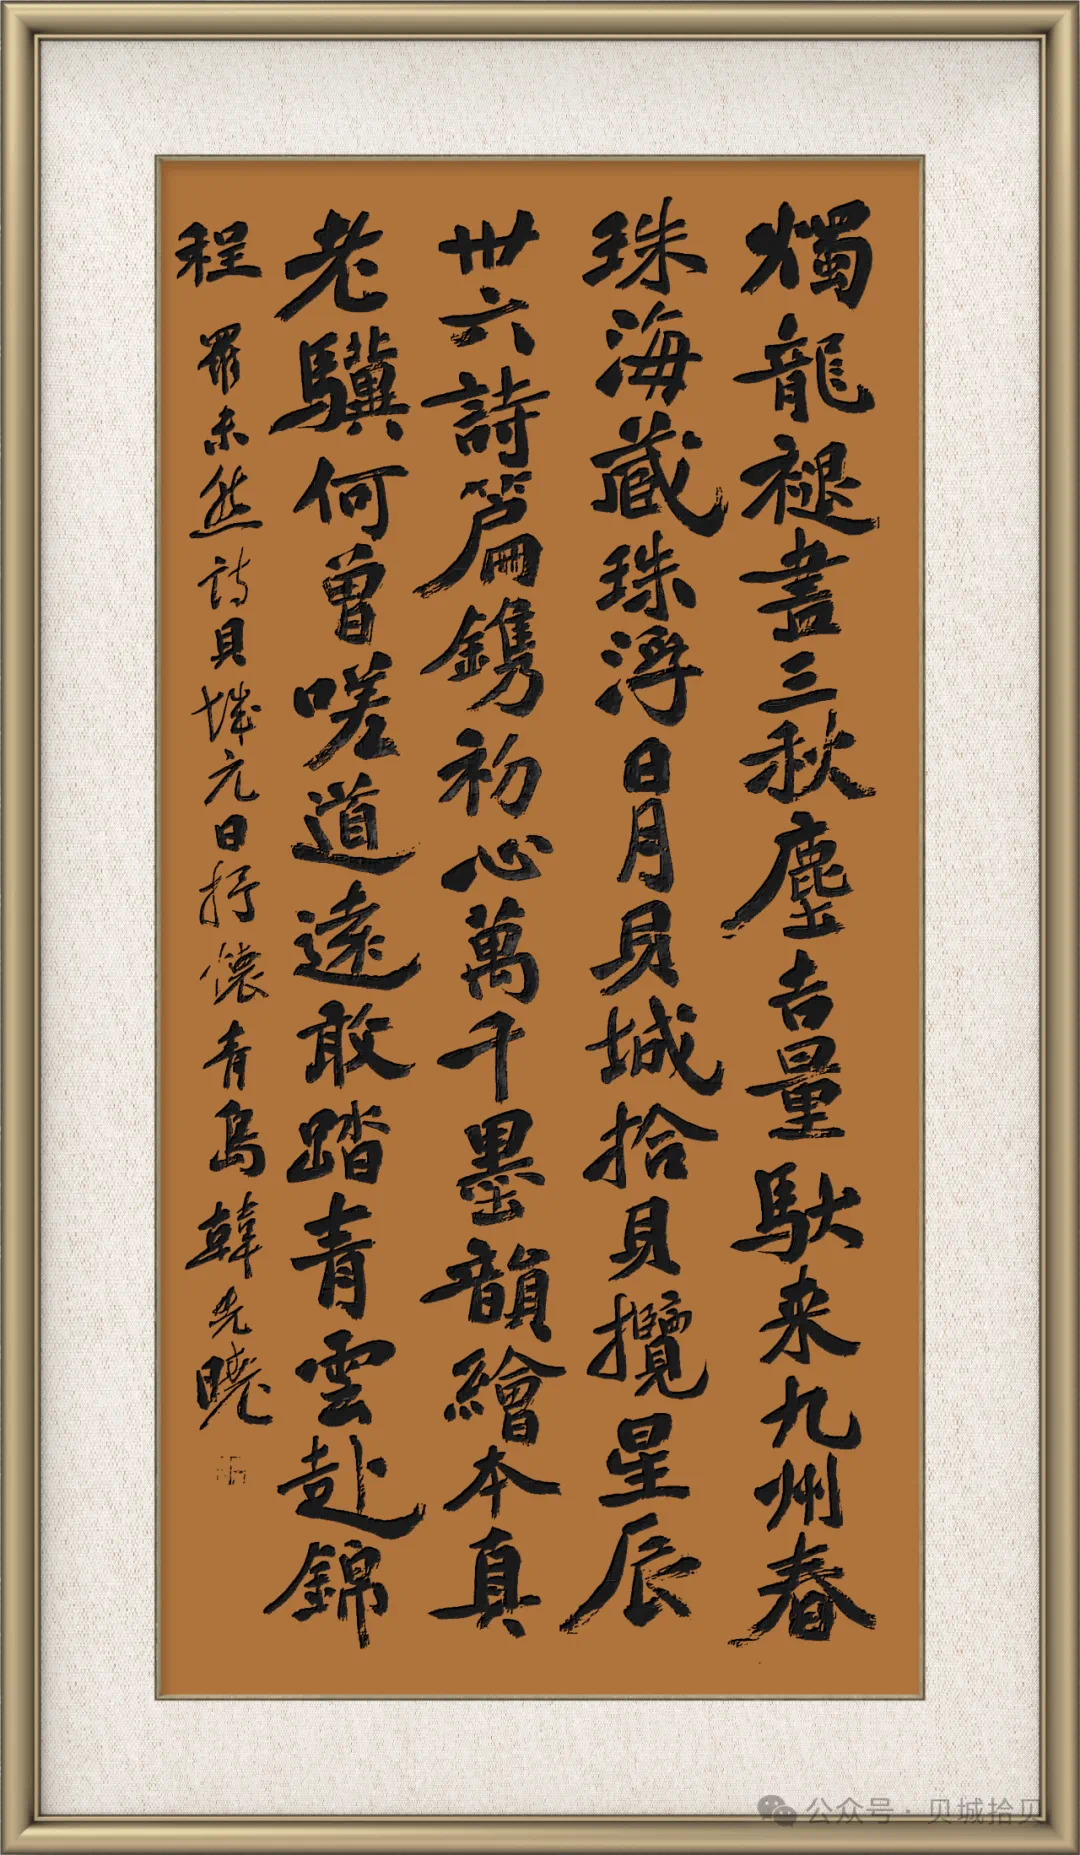 燭龍褪盡三秋塵吉量馱来九州春
珠海藏珠浮日月貝城拾貝攬星辰
卅六詩篇鐫初心萬千墨韻繪本真
老驥何曾嗟道遠敢踏青雲赴錦
程 羅未然詩貝城元日抒懷青島韓先曉
公众号·贝城拾贝